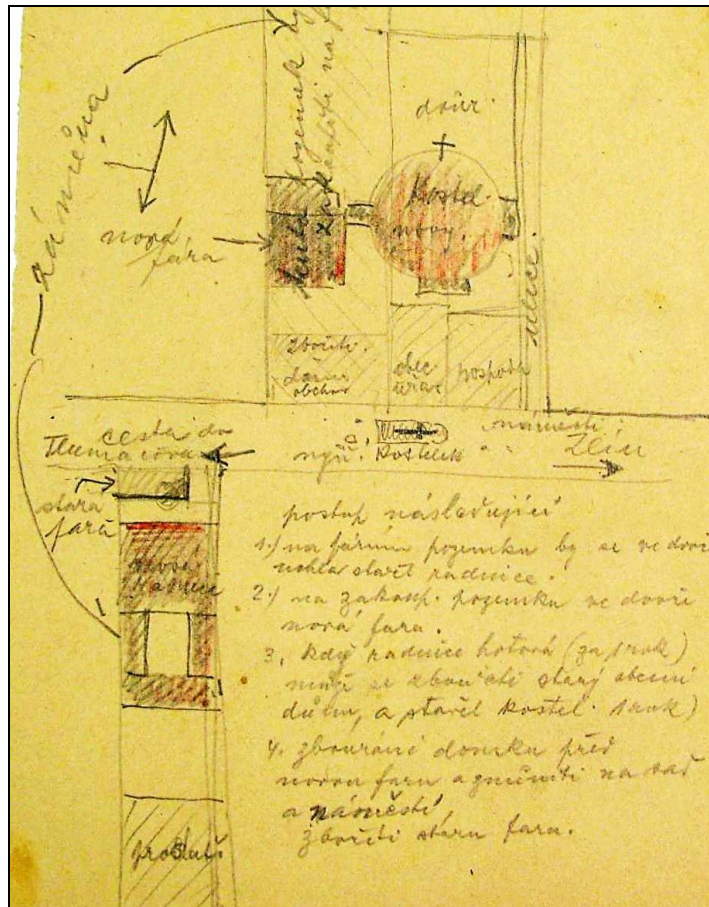 záměna
pozemek
na
dvůr.
Kostel
nový.
nová
fara
ulice.
zbořiti
obchod
obec
úřad
hospoda
cesta do
Tlumačova
kostelík
náměstí
Zlín
stará
fara
nová
radnice
postup následující
1.) na farním pozemku by se ve dvoře
mohla stavět radnice.
2.) na zakoup. pozemku ve dvoře
nová fara.
3. když radnice hotová (za 1 rok)
může se zbořiti starý obecní
dům, a stavět kostel. 1 rok)
4. zbourání domku před
novou farou a na sad
a náměstí,
zbořiti starou faru.